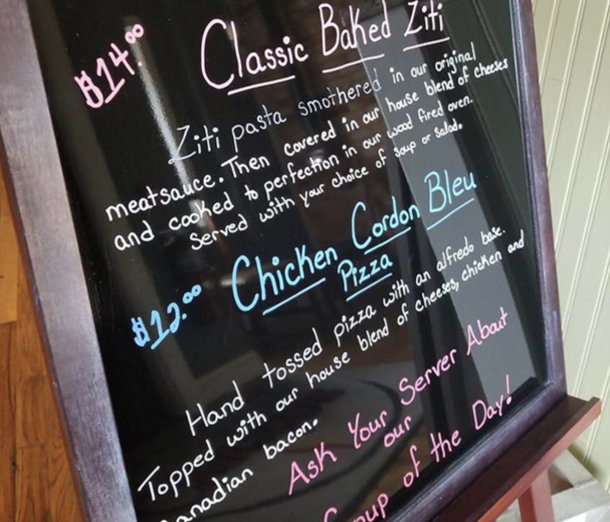 $14.00 Classic Baked Ziti
Ziti pasta smothered in our original
meatsauce. Then covered in our house blend of cheeses
and cooked to perfection in our wood fired oven.
Served with your choice of soup or salad.
$12.00 Chicken Cordon Bleu
Pizza
Hand tossed pizza with an alfredo base.
Topped with our house blend of cheeses, chicken and
anadian bacon.
Ask Your Server About
our
oup of the Day!